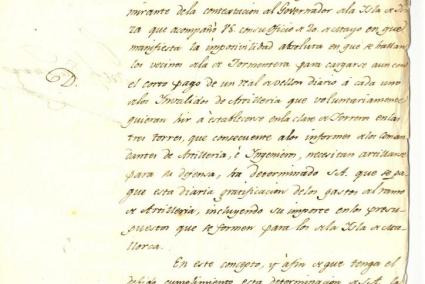 mirante de la contextacion al Governador a la Isla
za que acompaño V.S. con su Oficio a 20. a Mayo en que
manifiesta la imposibilidad absoluta en que se hallan
los vecinos a la a Formentera para cargarse aun con
el corto pago de un real a vellon diario à cada uno
a los Invalidos de Artilleria que voluntariamente
quieran hir à establecerse en la clase a Torrero en las
D.
tres torres, que consecuente a los informes a los Coman
dantes de Artilleria, è Ingenieros, necesitan artillarse
para su defensa, ha determinado S.A. que se pa
gue esta diaria gratificacion de los gastos al ramo
a Artilleria, incluyendo su importe en los presu-
puestos que se formen para los a la Isla a Ma
llorca.
En este concepto, y à fin a que tenga el
debido cumplimiento esta determinacion a S.A. la